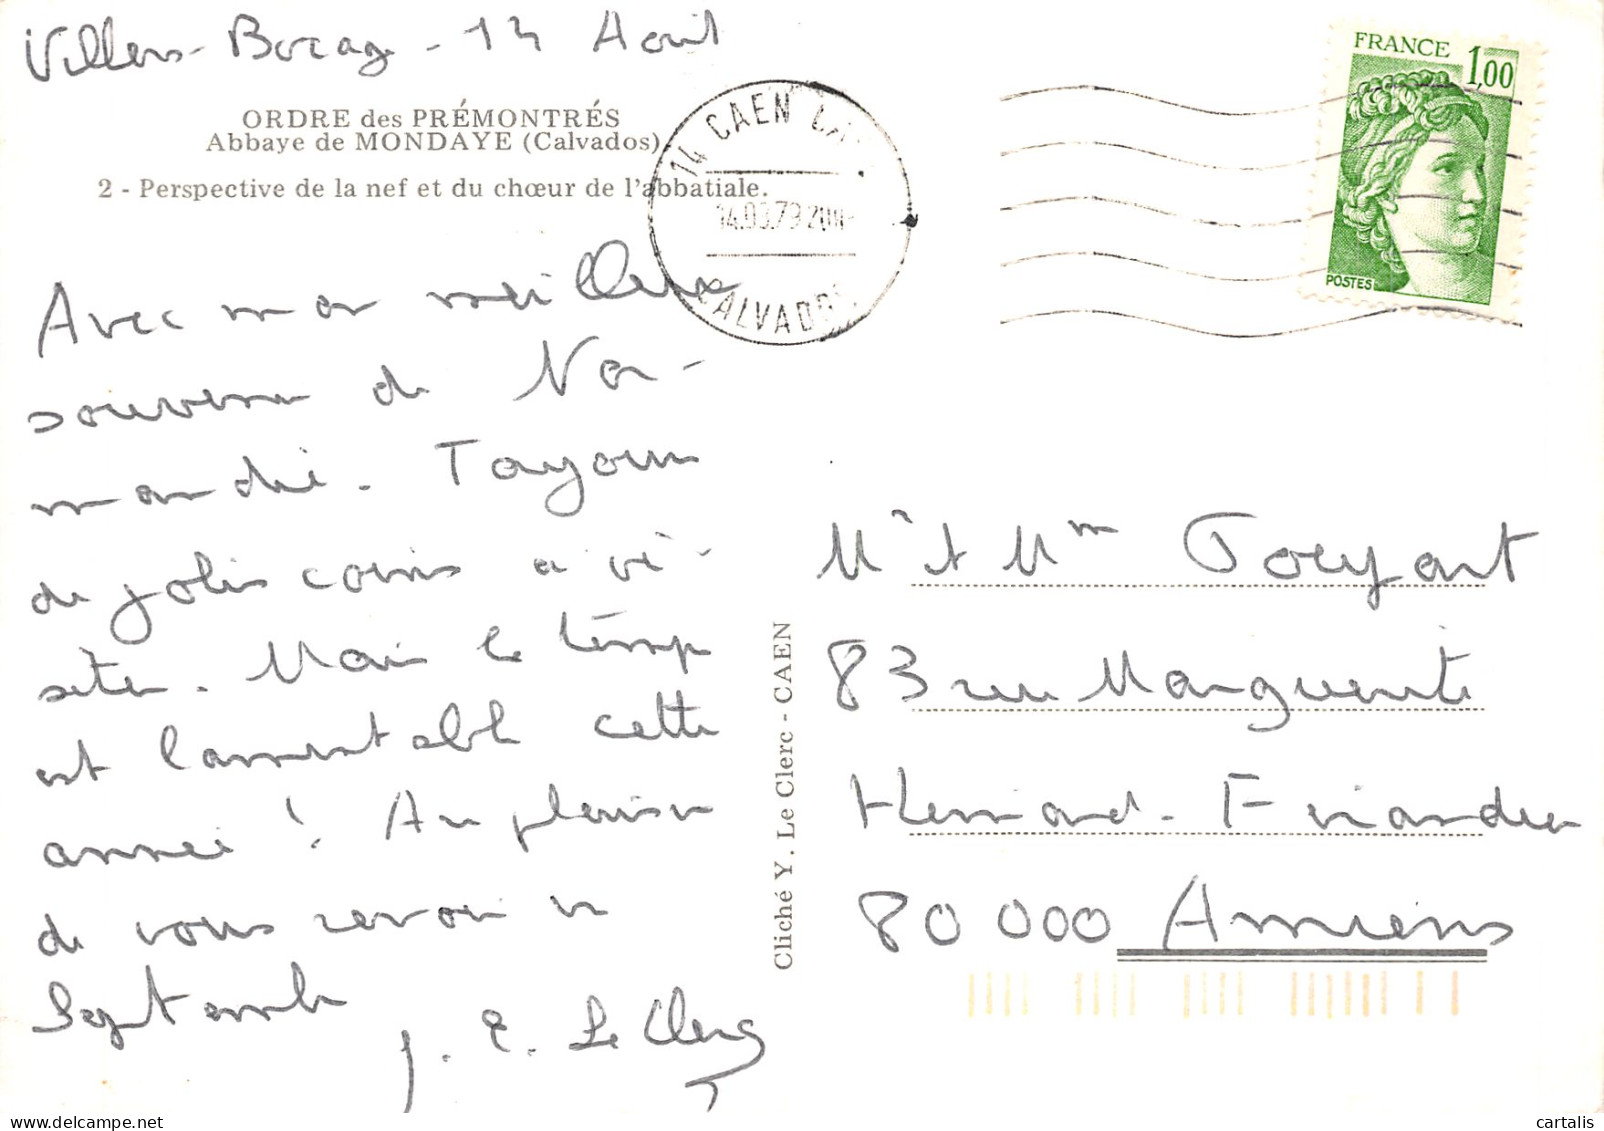 Villers-Bocage - 14 Août
ORDRE des PRÉMONTRÉS
Abbaye de MONDAYE (Calvados)
2 - Perspective de la nef et du chœur de l'abbatiale.
14 CAEN
14.0 .79
CALVADOS
FRANCE 1,00
POSTES
Avec mon meilleur
souvenir de Nor-
mandie. Toujours
de jolis coins à vi-
siter. Mais le temps
est lamentable cette
année ! Au plaisir
de vous revoir en
Septembre
J. E. Le Clerc
Cliché Y. Le Clerc - CAEN
Mr et Mme
83 rue Marguerite
Hémard-Finandier
80 000 Amiens
cartalis
delcampe.net